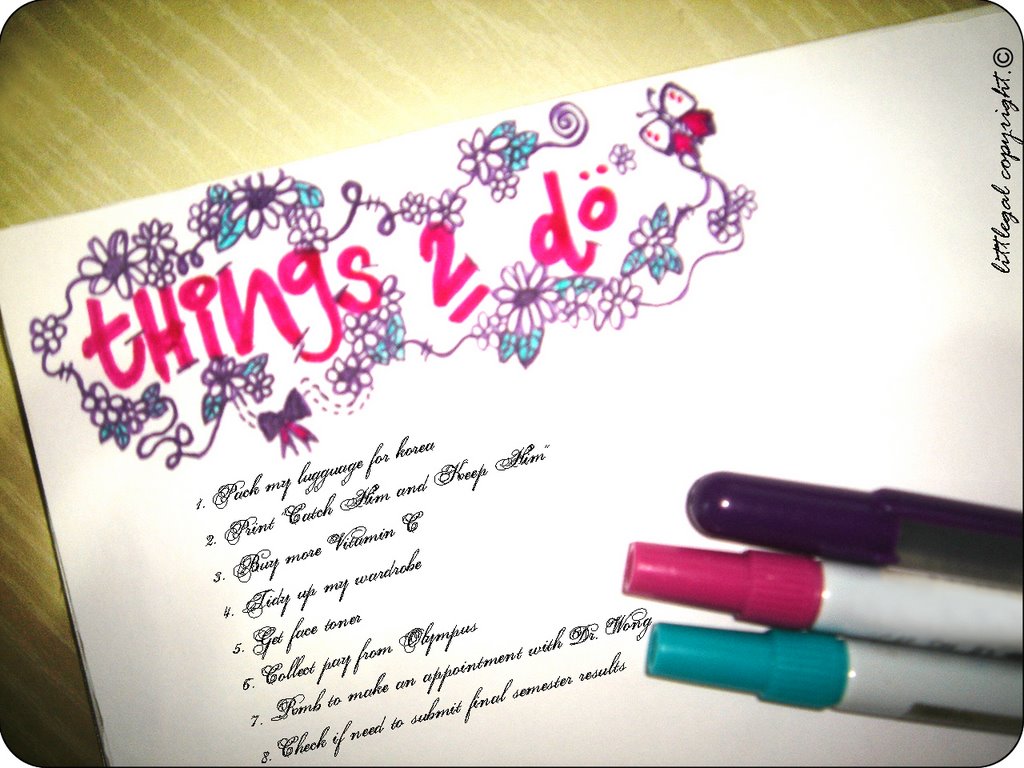 things 2 do
1. Pack my lugguage for korea
2. Print "Catch Him and Keep Him"
3. Buy more Vitamin C
4. Tidy up my wardrobe
5. Get face toner
6. Collect pay from Olympus
7. Rmb to make an appointment with Dr. Wong
8. Check if need to submit final semester results
littlegal copyright.©